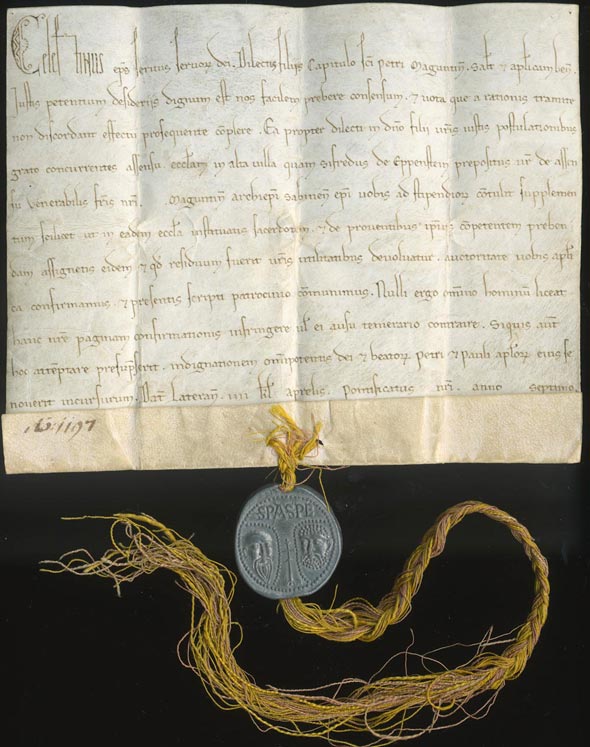 Celestinus eps seruus seruoꝝ dei. Dilectis filijs Capitulo sci petri Maguntin̄. Salt̄ ⁊ apl̓icam ben̄.
Iustis petentium desideriis dignum est nos facilem prebere consensum. ⁊ uota que a rationis tramite
non discordant effectu prosequente cōplere. Ea propter dilecti in dn̄o filii ur̄is iustis postulationibus
grato concurrentes assensu. eccl̓am in alta uilla quam sifredus de Eppenstein prepositus ur̄ de assen
su uenerabilis fr̄is nr̄i. Maguntin̄ archiep̄i sabinen̄ ep̄i uobis ad stipendioꝝ contulit supplemen
tum scilicet ut in eadem eccl̓a instituatis sacerdotem. ⁊ de prouentibus ip̄ius cōpetentem preben
dam assignetis eidem ⁊ qd̓ residuum fuerit ur̄is utilitatibus deuoluatur. auctoritate uobis apl̓i
ca confirmamus. ⁊ presentis scripti patrocinio cōmunimus. Nulli ergo om̄ino hominū liceat
hanc nr̄e paginam confirmationis infringere ul̓ ei ausu temerario contraire. Siquis aut̄
hoc attēptare presūpserit. indignationem om̄ipotentis dei ⁊ beatoꝝ petri ⁊ Pauli apl̓oꝝ eius se
nouerit incursurum. Dat̄ Lateran̄. iiii kl̓ aprelis. Pontificatus nr̄i. anno septimo
1197
SPASPE